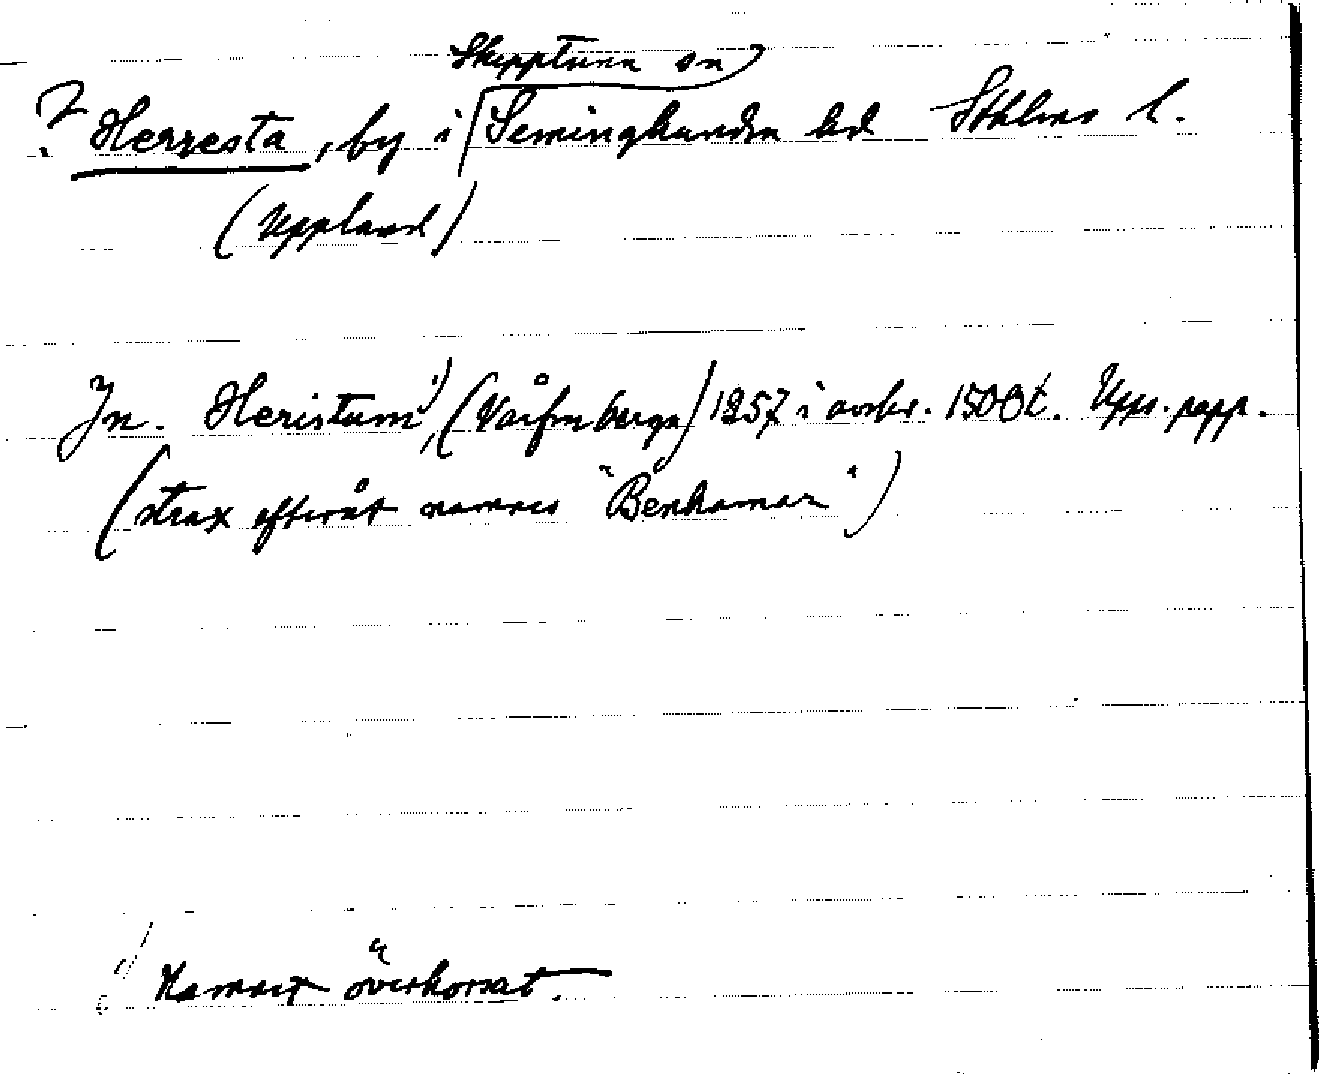 Skepptuna sn
? Herresta, by i Seminghundra hd Sthlms l.
(Uppland)
Jn. Heristum 1), (Vårfruberga) 1257 i avskr. 1500t. Upps. papp.
(strax efteråt namnes "Benhamar")
1) Namnet överkorsat.